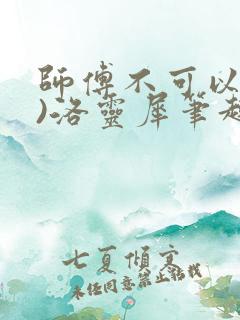 師傅不可以
)洛靈犀筆趣
七夏傾寞
未經同意禁止轉載